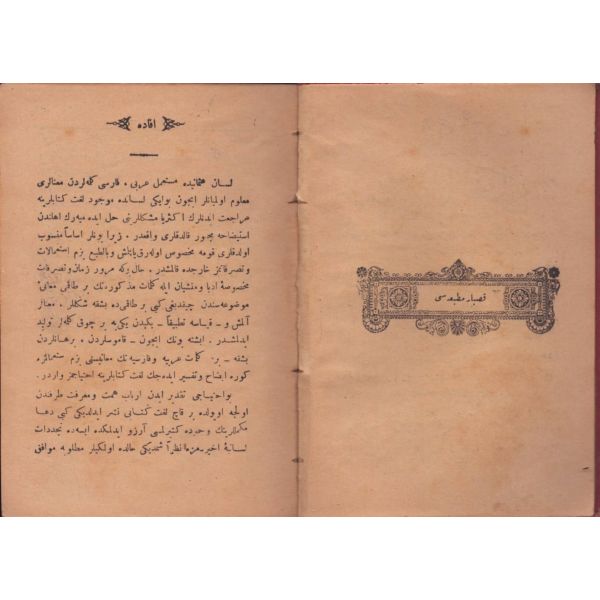 افاده
لسان عثمانیده مستعمل عربی ، فارسی كلمه‌لردن معنالری
معلوم اولمیانلر ایچون بوایكی لسانده موجود لغت كتابلرینه
مراجعت ایدنلرك اكثریا مشكللرینی حل ایده میه‌رك اهلندن
استیضاحه مجبور قالدقلری واقعدر . زیرا بونلر اساساً منسوب
اولدقلری قومه مخصوص اوله‌رق یاپلمش وبالطبع بزم استعمالات
وتصرفاتمز خارجده قالمشدر . حال‌بوكه مرور زمان وتصرفات
مخصوصۀ ادبا ومنشیان ایله كلمات مذكوره‌نك بر طاقمی معانئ
موضوعه‌سندن چیقدیغی كبی بر طاقمی‌ده بشقه شكللر ، معنالر
آلمش و ـ قیاسه تطبیقاً ـ یكیدن یكی‌یه بر چوق كلمه‌لر تولید
ایدلمشدر . ایشته بونك ایچون ـ قاموسلردن ، برهانلردن
بشقه ـ بز كلمات عربیه وفارسیه‌نك معانیسنی بزم استعمالمزه
كوره ایضاح وتفسیر ایده‌جك لغت كتابلرینه احتیاجمز واردر .
بواحتیاجی تقدیر ایدن ارباب همت ومعرفت طرفندن
اولجه اویولده بر قاچ لغت كتابی نشر ایدلدیكی كبی دها
مكمللرینك وجوده كتیرلمسی آرزو ایدلمكده ایسه‌ده تجددات
لسانیۀ اخیره‌مزه نظراً شمدیكی حالده اولكیلر مطلوبه موافق
قصبار مطبعه‌سی